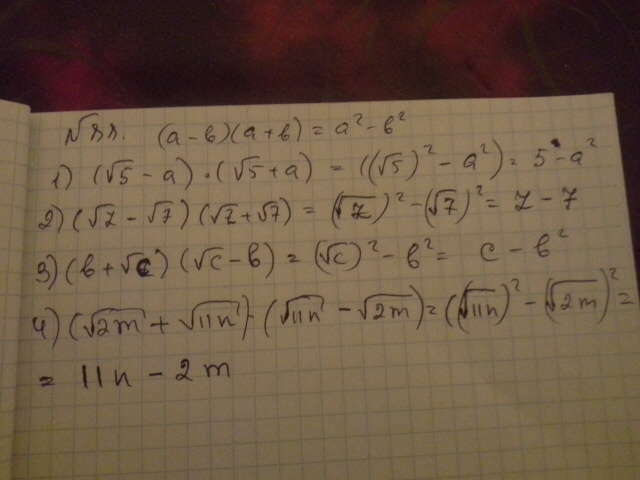 № 11. (a-b)(a+b) = a² - b²
1) (√5 - a) · (√5 + a) = ((√5)² - a²) = 5 - a²
2) (√z - √7) (√z + √7) = (√z)² - (√7)² = z - 7
3) (b + √c) (√c - b) = (√c)² - b² = c - b²
4) (√2m + √11n) · (√11n - √2m) = ((√11n)² - (√2m)² =
= 11n - 2m